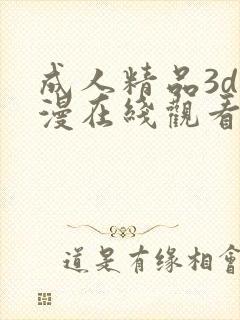 成人精品3d
漫在綫觀看
道是有缘相會